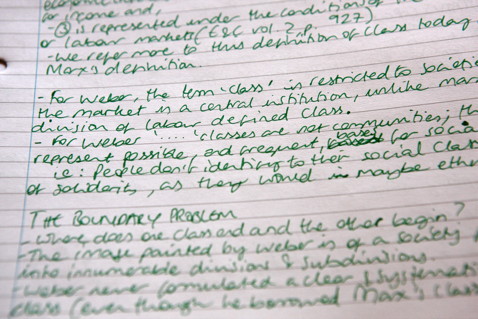 for income and,
- (3) is represented under the conditions of
or labour markets (E&C vol. 2 p. 927)
- we refer more to this definition of class today
Marx's definition.
- For Weber, the term 'class' is restricted to societi
the market is a central institution, unlike mar
division of labour defined class.
- For Weber .... 'classes are not communities; th
represent possible, and frequent, bases for socia
i.e: People don't identify to their social class
of solidarity, as they would in maybe ethn
THE BOUNDARY PROBLEM
- Where does one class end and the other begin?
- The image painted by Weber is of a society
into innumerable divisions & subdivisions.
- Weber never formulated a clear & systemati
class (even though he borrowed Marx's class